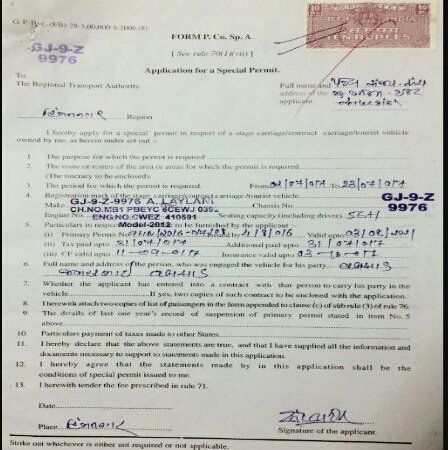 G.P.Bvr.-(EB)-28-3,00,000-5-2006.(8).
FORM P. Co. Sp. A.
GJ-9-Z
9976
[ See rule 70(1)(vii) ]
Application for a Special Permit.
INDIA
TEN RUPEES
To,
The Regional Transport Authority.
હિંમતનગર Region
Full name and
address of the
applicant.
I hereby apply for a special permit in respect of a stage carriage/contract carriage/tourist vehicle
owned by me, as herein under set out :-
1. The purpose for which the permit is required
2. The route or routes of the area or areas for which the permit is required
(The itinerary to be enclosed).
3. The period fee which the permit is required From 07/017 To 23/07/017
4. Registration mark of the stage carriage/contract carriage/tourist vehicle
GJ-9-Z-9976 A.LAYLAND
Make Chassis No.
GJ-9-Z
9976
CH.NO.MB1 PBEYC 6CEWJ 035
Engine No. ENGNO.CWEZ 410591 Seating capacity (including driver)
Model-2012
5. Particulars in respect to be furnished by the applicant :
(i) Primary Permit No. 4/8/016 Valid upto 03/08/2021
(ii) Tax paid upto 31/07/017 Additional paid upto 31/07/017
(iii) CF valid upto Insurance valid upto
6. Full name and address of the person, who engaged the vehicle for his party
7. Whether the applicant has entered into a contract with that person to carry his party in the
vehicle If yes, two copies of such contract to be enclosed with the application.
8. I herewith attach two copies of list of passengers in the form appended to clause (c) of sub rule (3) of rule 76.
9. The details of last one year's record of suspension of primary permit stated in item No. 5
above
10. Particulars payment of taxes made to other States
11. I hereby declare that the above statements are true, and that I have supplied all the information and
documents necessary to support to statements made in this application.
12. I hereby agree that the statements made by in this application shall be the
conditions of special permit issued to me.
13. I herewith tender the fee prescribed in rule 71.
Date
Place હિંમતનગર
Signature of the applicant.
Strike out whichever is either not required or not applicable.